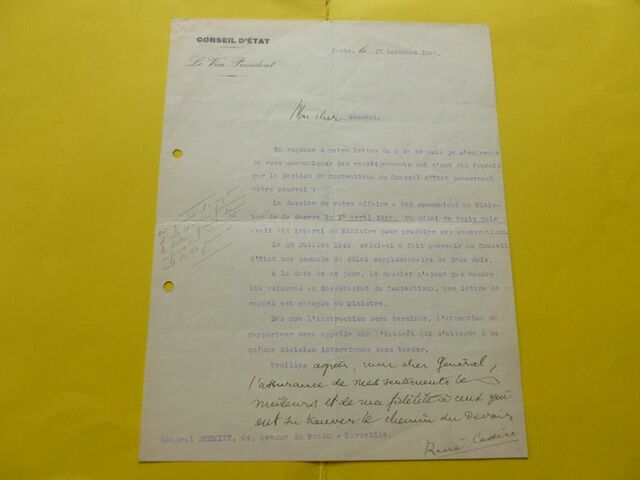 CONSEIL D'ÉTAT
Le Vice Président
Paris, le 13 Novembre 1945.
Mon cher Général,
En réponse à votre lettre du 5 de ce mois je m'empresse
de vous communiquer les renseignements qui m'ont été fournis
par la Section du Contentieux du Conseil d'État concernant
votre pourvoi :
Le dossier de votre affaire a été communiqué au Minis-
tre de la Guerre le 17 avril 1945. Un délai de trois mois
avait été imparti au Ministre pour produire ses observations.
Le 25 Juillet 1945, celui-ci a fait parvenir au Conseil
d'État une demande de délai supplémentaire de deux mois.
A la date de ce jour, le dossier n'ayant pas encore
été retourné au Secrétariat du Contentieux, une lettre de
rappel est envoyée au Ministre.
Dès que l'instruction sera terminée, l'attention du
rapporteur sera appelée sur l'intérêt qui s'attache à ce
qu'une décision intervienne sans tarder.
Veuillez agréer, mon cher Général,
l'assurance de mes sentiments les
meilleurs et de ma fidélité à ceux qui
ont su trouver le chemin du Devoir
René Cassin
Général SCHMITT, 94, Avenue du Prado - Marseille.